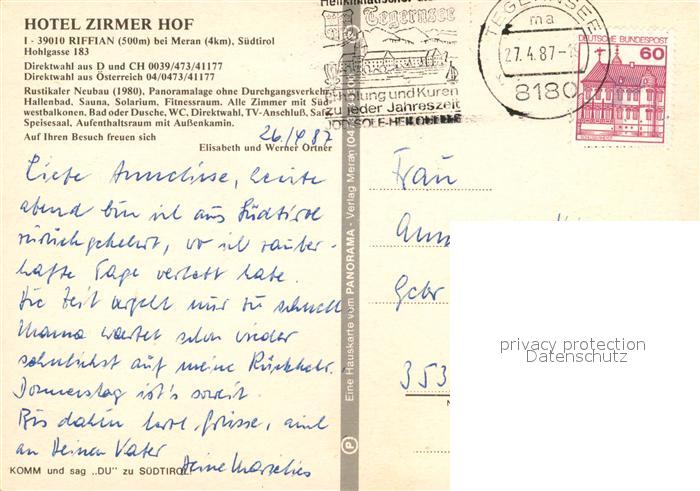 HOTEL ZIRMER HOF
I - 39010 RIFFIAN (500m) bei Meran (4km), Südtirol
Hohlgasse 183
Direktwahl aus D und CH 0039/473/41177
Direktwahl aus Österreich 04/0473/41177
Rustikaler Neubau (1980), Panoramalage ohne Durchgangsverkehr
Hallenbad, Sauna, Solarium, Fitnessraum. Alle Zimmer mit Süd-
westbalkonen, Bad oder Dusche, WC, Direktwahl, TV-Anschluß, Safe
Speisesaal, Aufenthaltsraum mit Außenkamin.
Auf Ihren Besuch freuen sich
Elisabeth und Werner Ortner
26/4 87
Liebe Anneliese, heute
abend bin ich aus Südtirol
zurückgekehrt, wo ich zauber-
hafte Tage verlebt habe.
Die Zeit vergeht nur zu schnell
Mama wartet schon wieder
sehnlichst auf meine Rückkehr.
Donnerstag ist's soweit.
Bis dahin Grüsse, auch
an Deinen Vater
Deine
KOMM und sag „DU" zu SÜDTIROL
Eine Hauskarte vom PANORAMA - Verlag Meran (04
P
Tegernsee
Erholung und Kuren
zu jeder Jahreszeit
JOD-SOLE-HEILQUELLE
TEGERNSEE
ma
27.4.87-1
8180
DEUTSCHE BUNDESPOST
60
Frau
Ann
Gebr
353
privacy protection
Datenschutz